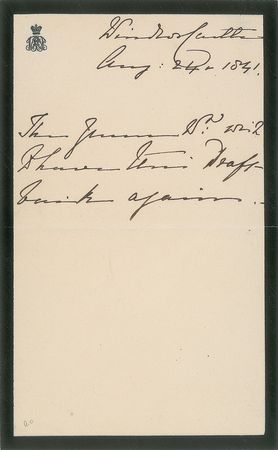 Windsor Castle
Aug: 24. 1841.
The Queen wd. wish
to have this Draft
back again.